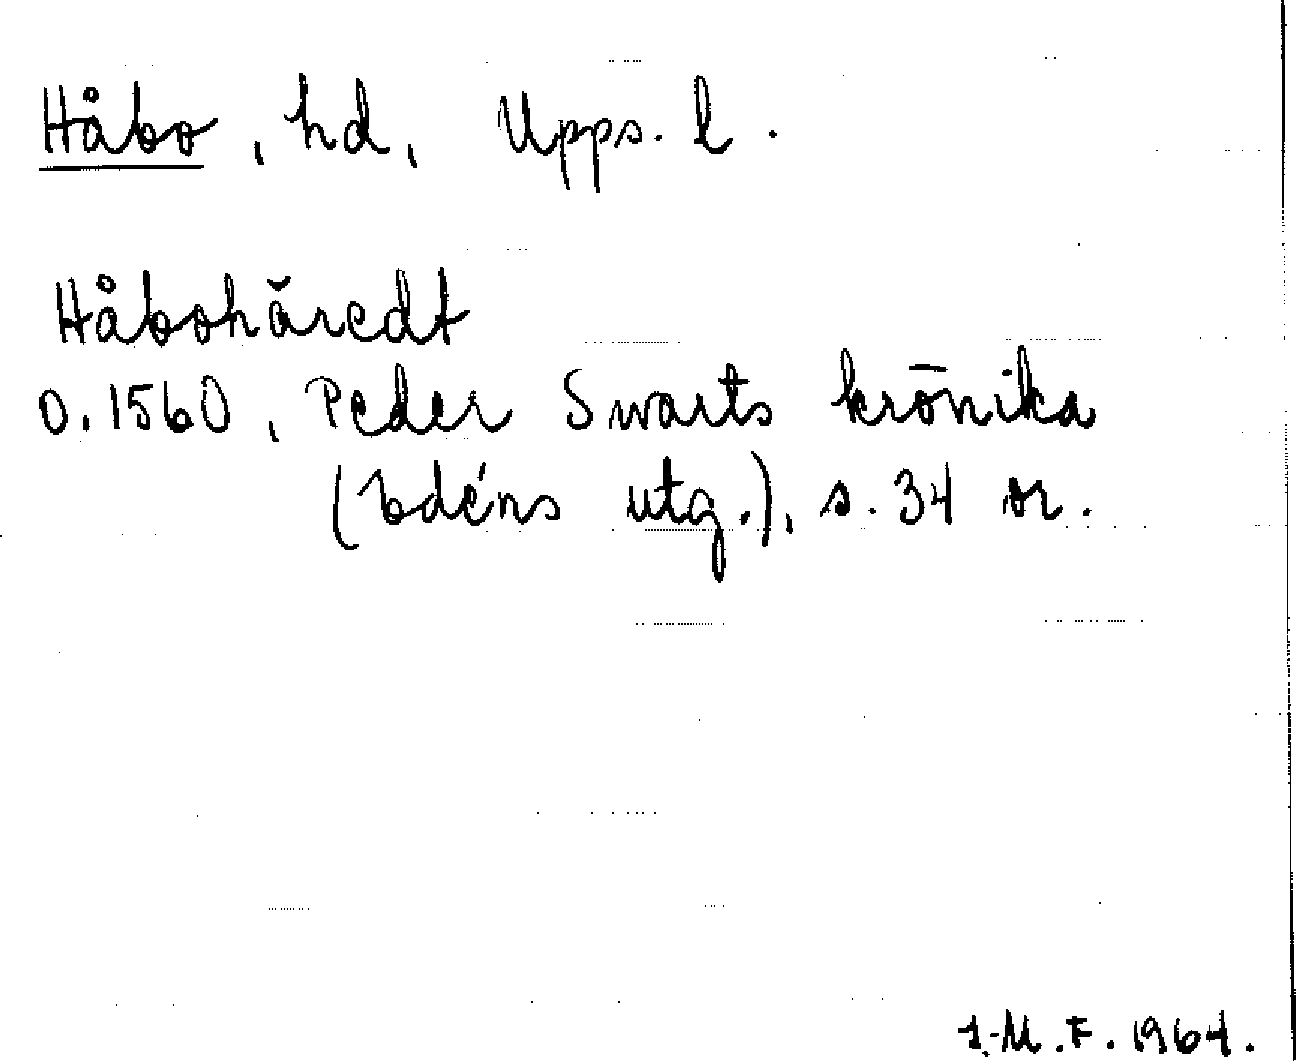 Håbo, hd, Upps. l.
Håbohäredt
o. 1560, Peder Swarts krönika
(Edéns utg.), s. 34 or.
I-M.F. 1964.